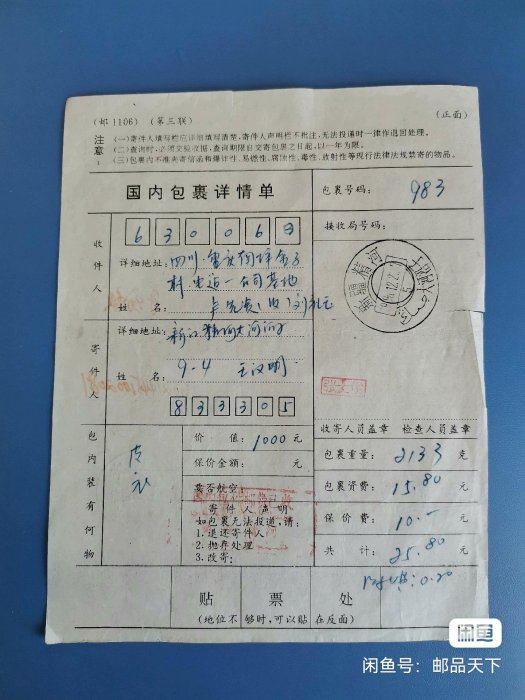 (邮1106) (第三联) (正面)
注意
(一)寄件人填写栏应详细填写清楚,寄件人声明栏不批注,无法投递时一律作退回处理。
(二)查询时,必须交验收据,查询期限自交寄包裹之日起,以一年为限。
(三)包裹内不准夹寄信函和爆炸性、易燃性、腐蚀性、毒性、放射性等现行法律法规禁寄的物品。
国内包裹详情单
包裹号码: 983
接收局号码:
收件人
630063
详细地址: 四川
姓名:
新疆精河
寄件人
详细地址: 新江精河大河沿
9-4 王汉明
姓名:
833305
收寄人员盖章 检查人员盖章
包内装有何物
皮衣
价值: 1000元
保价金额: 元
要否航空:
寄件人声明
如包裹无法投递,请:
1.退还寄件人
2.抛弃处理
3.改寄:
包裹重量: 2133 克
包裹资费: 15.80 元
保价费: 10.- 元
共计: 25.80 元
0.20
贴票处
(地位不够时,可以贴在反面)
闲鱼
闲鱼号:邮品天下